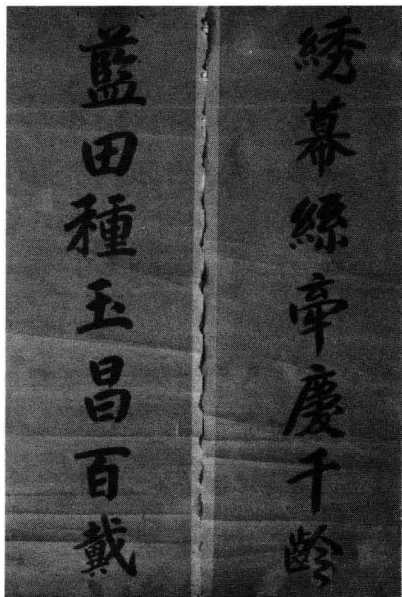 綉幕絲牽慶千齡
藍田種玉昌百戴